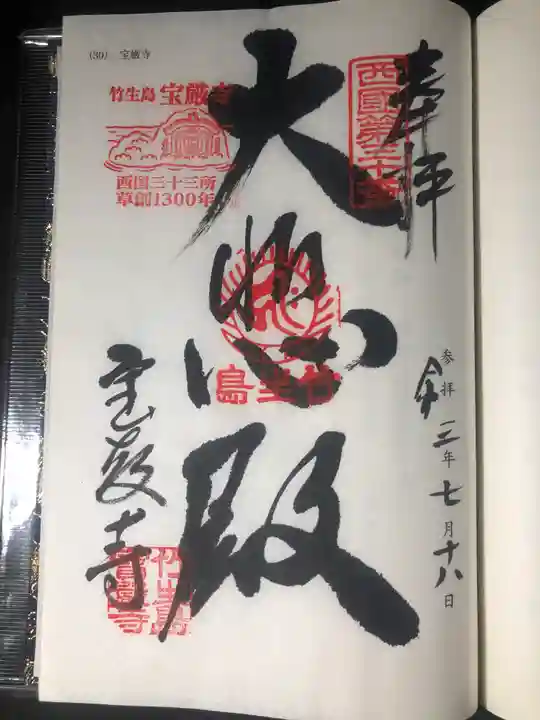 (30) 宝厳寺
奉拝
西國第三十番
参拝 令和三年七月十八日
大悲殿
竹生島 宝厳寺
西国三十三所
草創1300年
竹生島
宝厳寺
竹生島
寺